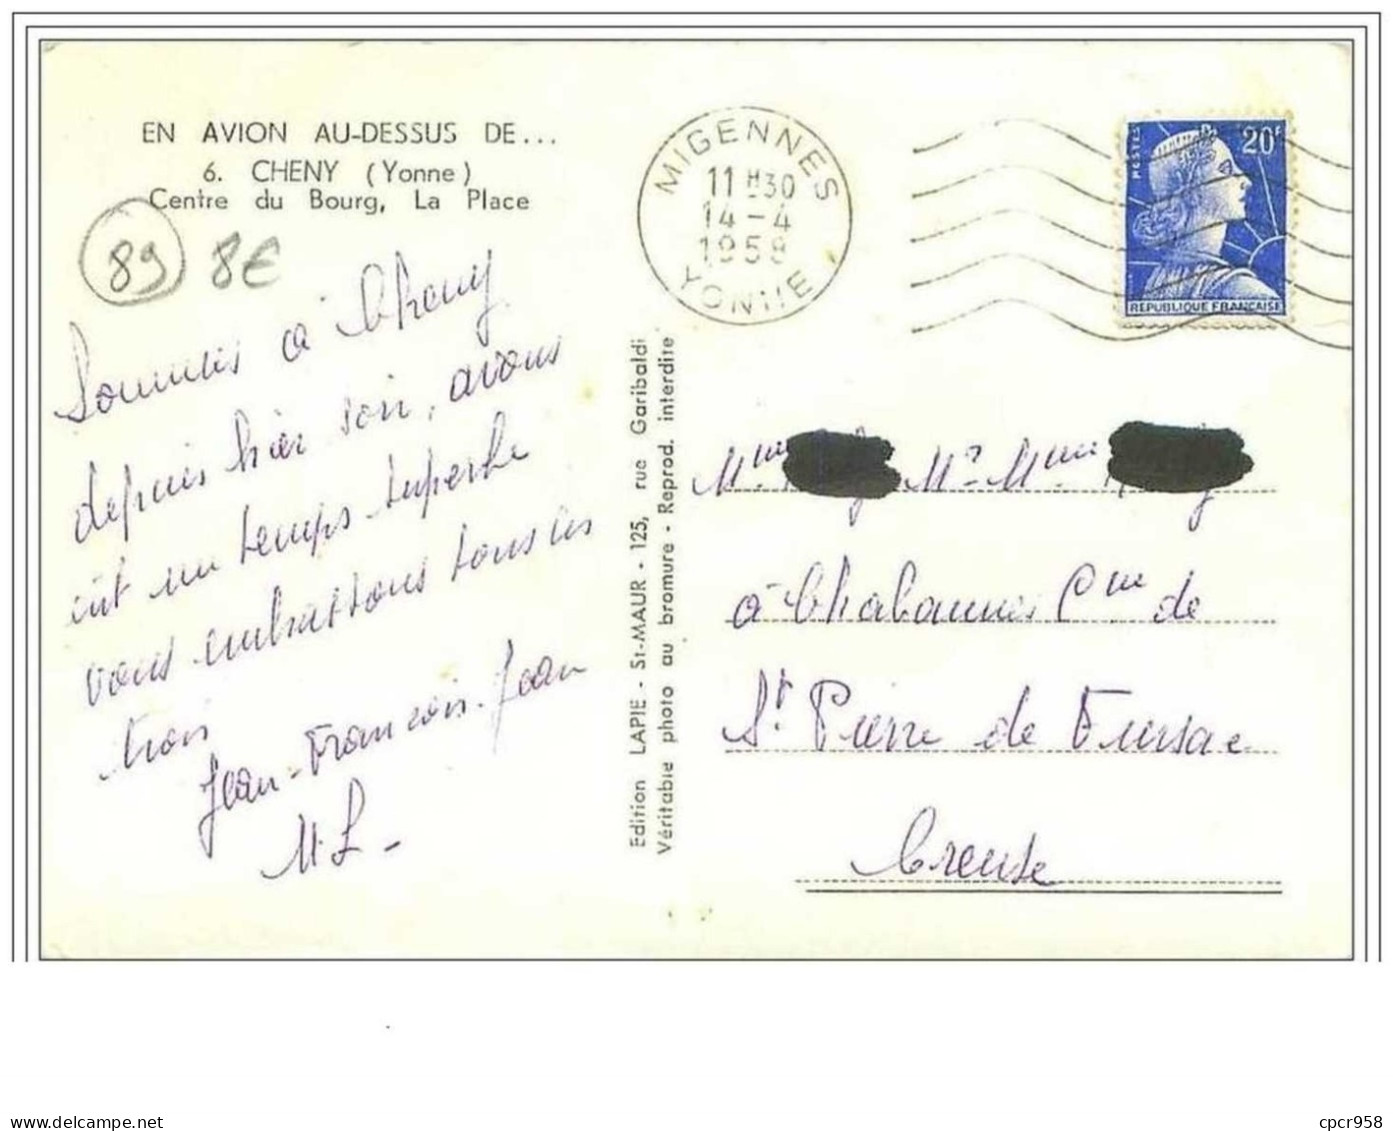 EN AVION AU-DESSUS DE...
6. CHENY (Yonne)
Centre du Bourg, La Place
89 8€
Sommes à Cheny
depuis hier soir, avons
eût un temps superbe
vous embrassons tous les
trois
Jean-François. Jean
M.L-
Edition LAPIE - St-MAUR - 125, rue Garibaldi
Véritable photo au bromure - Reprod. interdite
MIGENNES
11H30
14-4
1958
YONNE
POSTES
20F
REPUBLIQUE FRANCAISE
Mme Mr Mme
à Chabannes Cne de
St Pierre de Fursac
Creuse
cpcr958